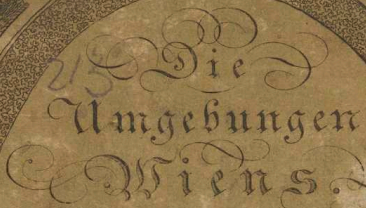 213
Die
Umgebungen
Wiens.